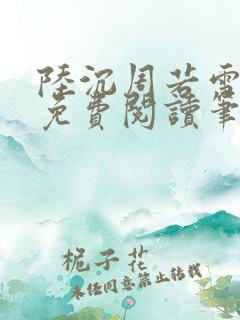 陸沉周若雪
免費閱讀筆
梔子花
未经同意禁止转载